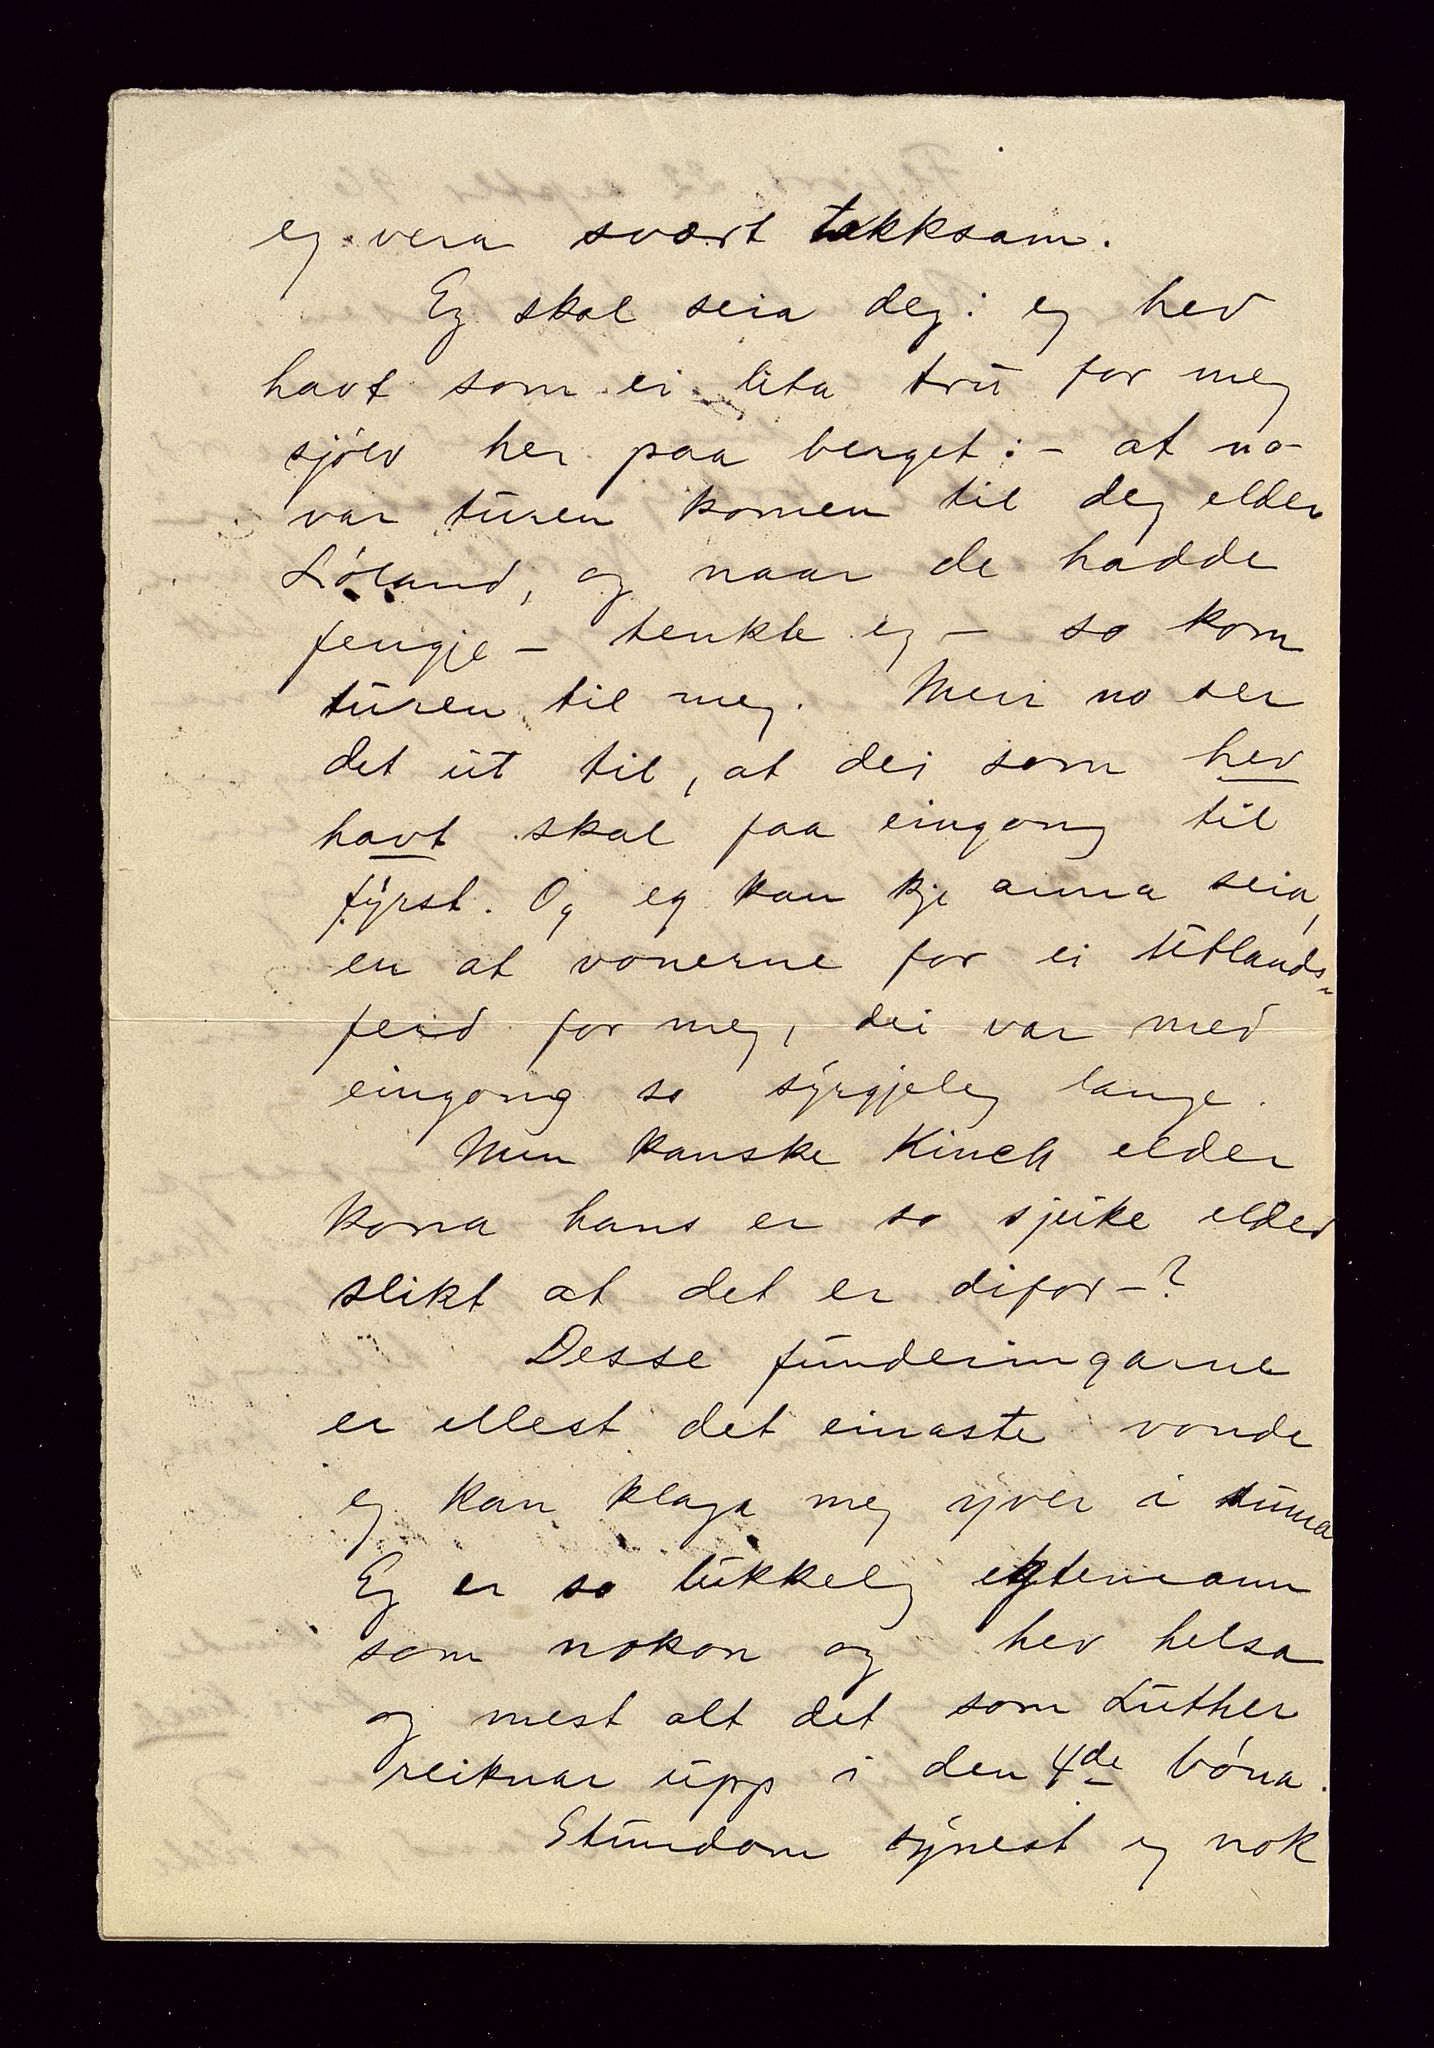 eg vera svært takksam.
Eg skal seia deg: eg hev
havt som ei lita tru for meg
sjølv her paa berget: – at no
var turen komen til deg elder
Løland, og naar de hadde
fengje – tenkte eg – so kom
turen til meg. Men no ser
det ut til, at dei som hev
havt skal faa eingong til
fyrst. Og eg kan kje anna seia,
en at vonerne for ei utlands-
ferd for meg, dei var med
eingong so syrgjeleg lange.
Men kanske Kinck elder
kona hans er so sjuke elder
slikt at det er difor –?
Desse funderingarne
er ellest det einaste vonde
eg kan klaga meg yver i
Eg er so lukkeleg egtemann
som nokon og hev helsa
og mest alt det som Luther
reiknar upp i den 4de bøna.
Stundom synest eg nok